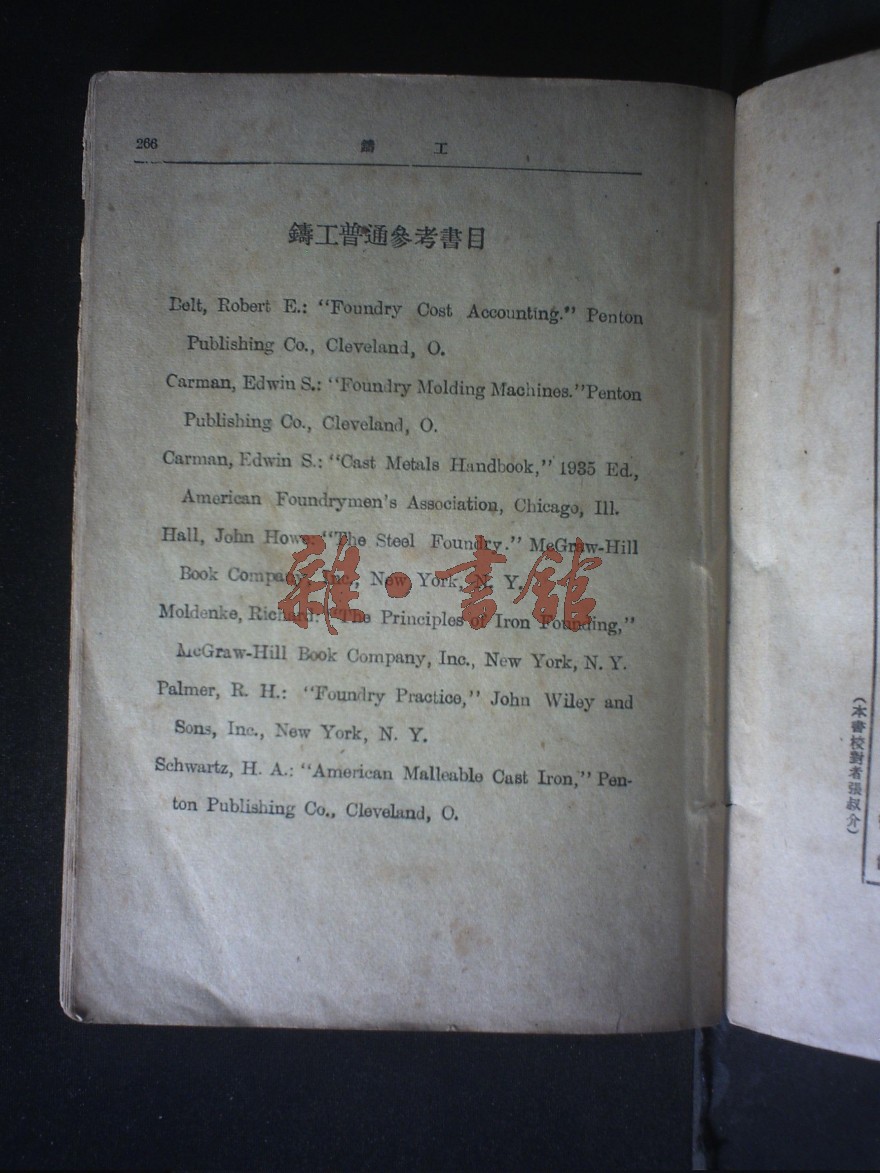 266
鑄 工
鑄工普通參考書目
Belt, Robert E.: “Foundry Cost Accounting.” Penton
Publishing Co., Cleveland, O.
Carman, Edwin S.: “Foundry Molding Machines.”Penton
Publishing Co., Cleveland, O.
Carman, Edwin S.: “Cast Metals Handbook,” 1935 Ed.,
American Foundrymen’s Association, Chicago, Ill.
Hall, John Howe: “The Steel Foundry.” McGraw-Hill
Book Company, Inc., New York, N. Y.
Moldenke, Richard: “The Principles of Iron Founding,”
McGraw-Hill Book Company, Inc., New York, N. Y.
Palmer, R. H.: “Foundry Practice,” John Wiley and
Sons, Inc., New York, N. Y.
Schwartz, H. A.: “American Malleable Cast Iron,” Pen-
ton Publishing Co., Cleveland, O.
雜·書館
（本書校對者張叔介）